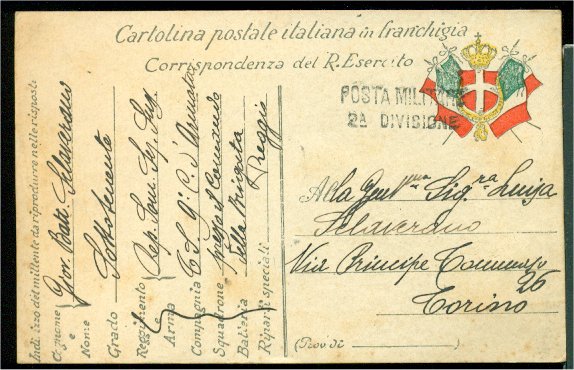 Cartolina postale italiana in franchigia
Corrispondenza del R. Esercito
POSTA MILITARE
2ª DIVISIONE
Alla Sig.ra Luiza
Sclaverano
Via Principe Tommaso
26
Torino
(Prov di )
Indirizzo del mittente da riprodurre nelle risposte
Cognome e Nome Giov. Batt. Sclaverano
Grado Sottotenente
Reggimento e Arma Rep. Som. Seg.
Compagnia C. S. 9° C. d'Armata
Squadrone presso il Comando
Batteria della Brigata
Riparti speciali Reggio